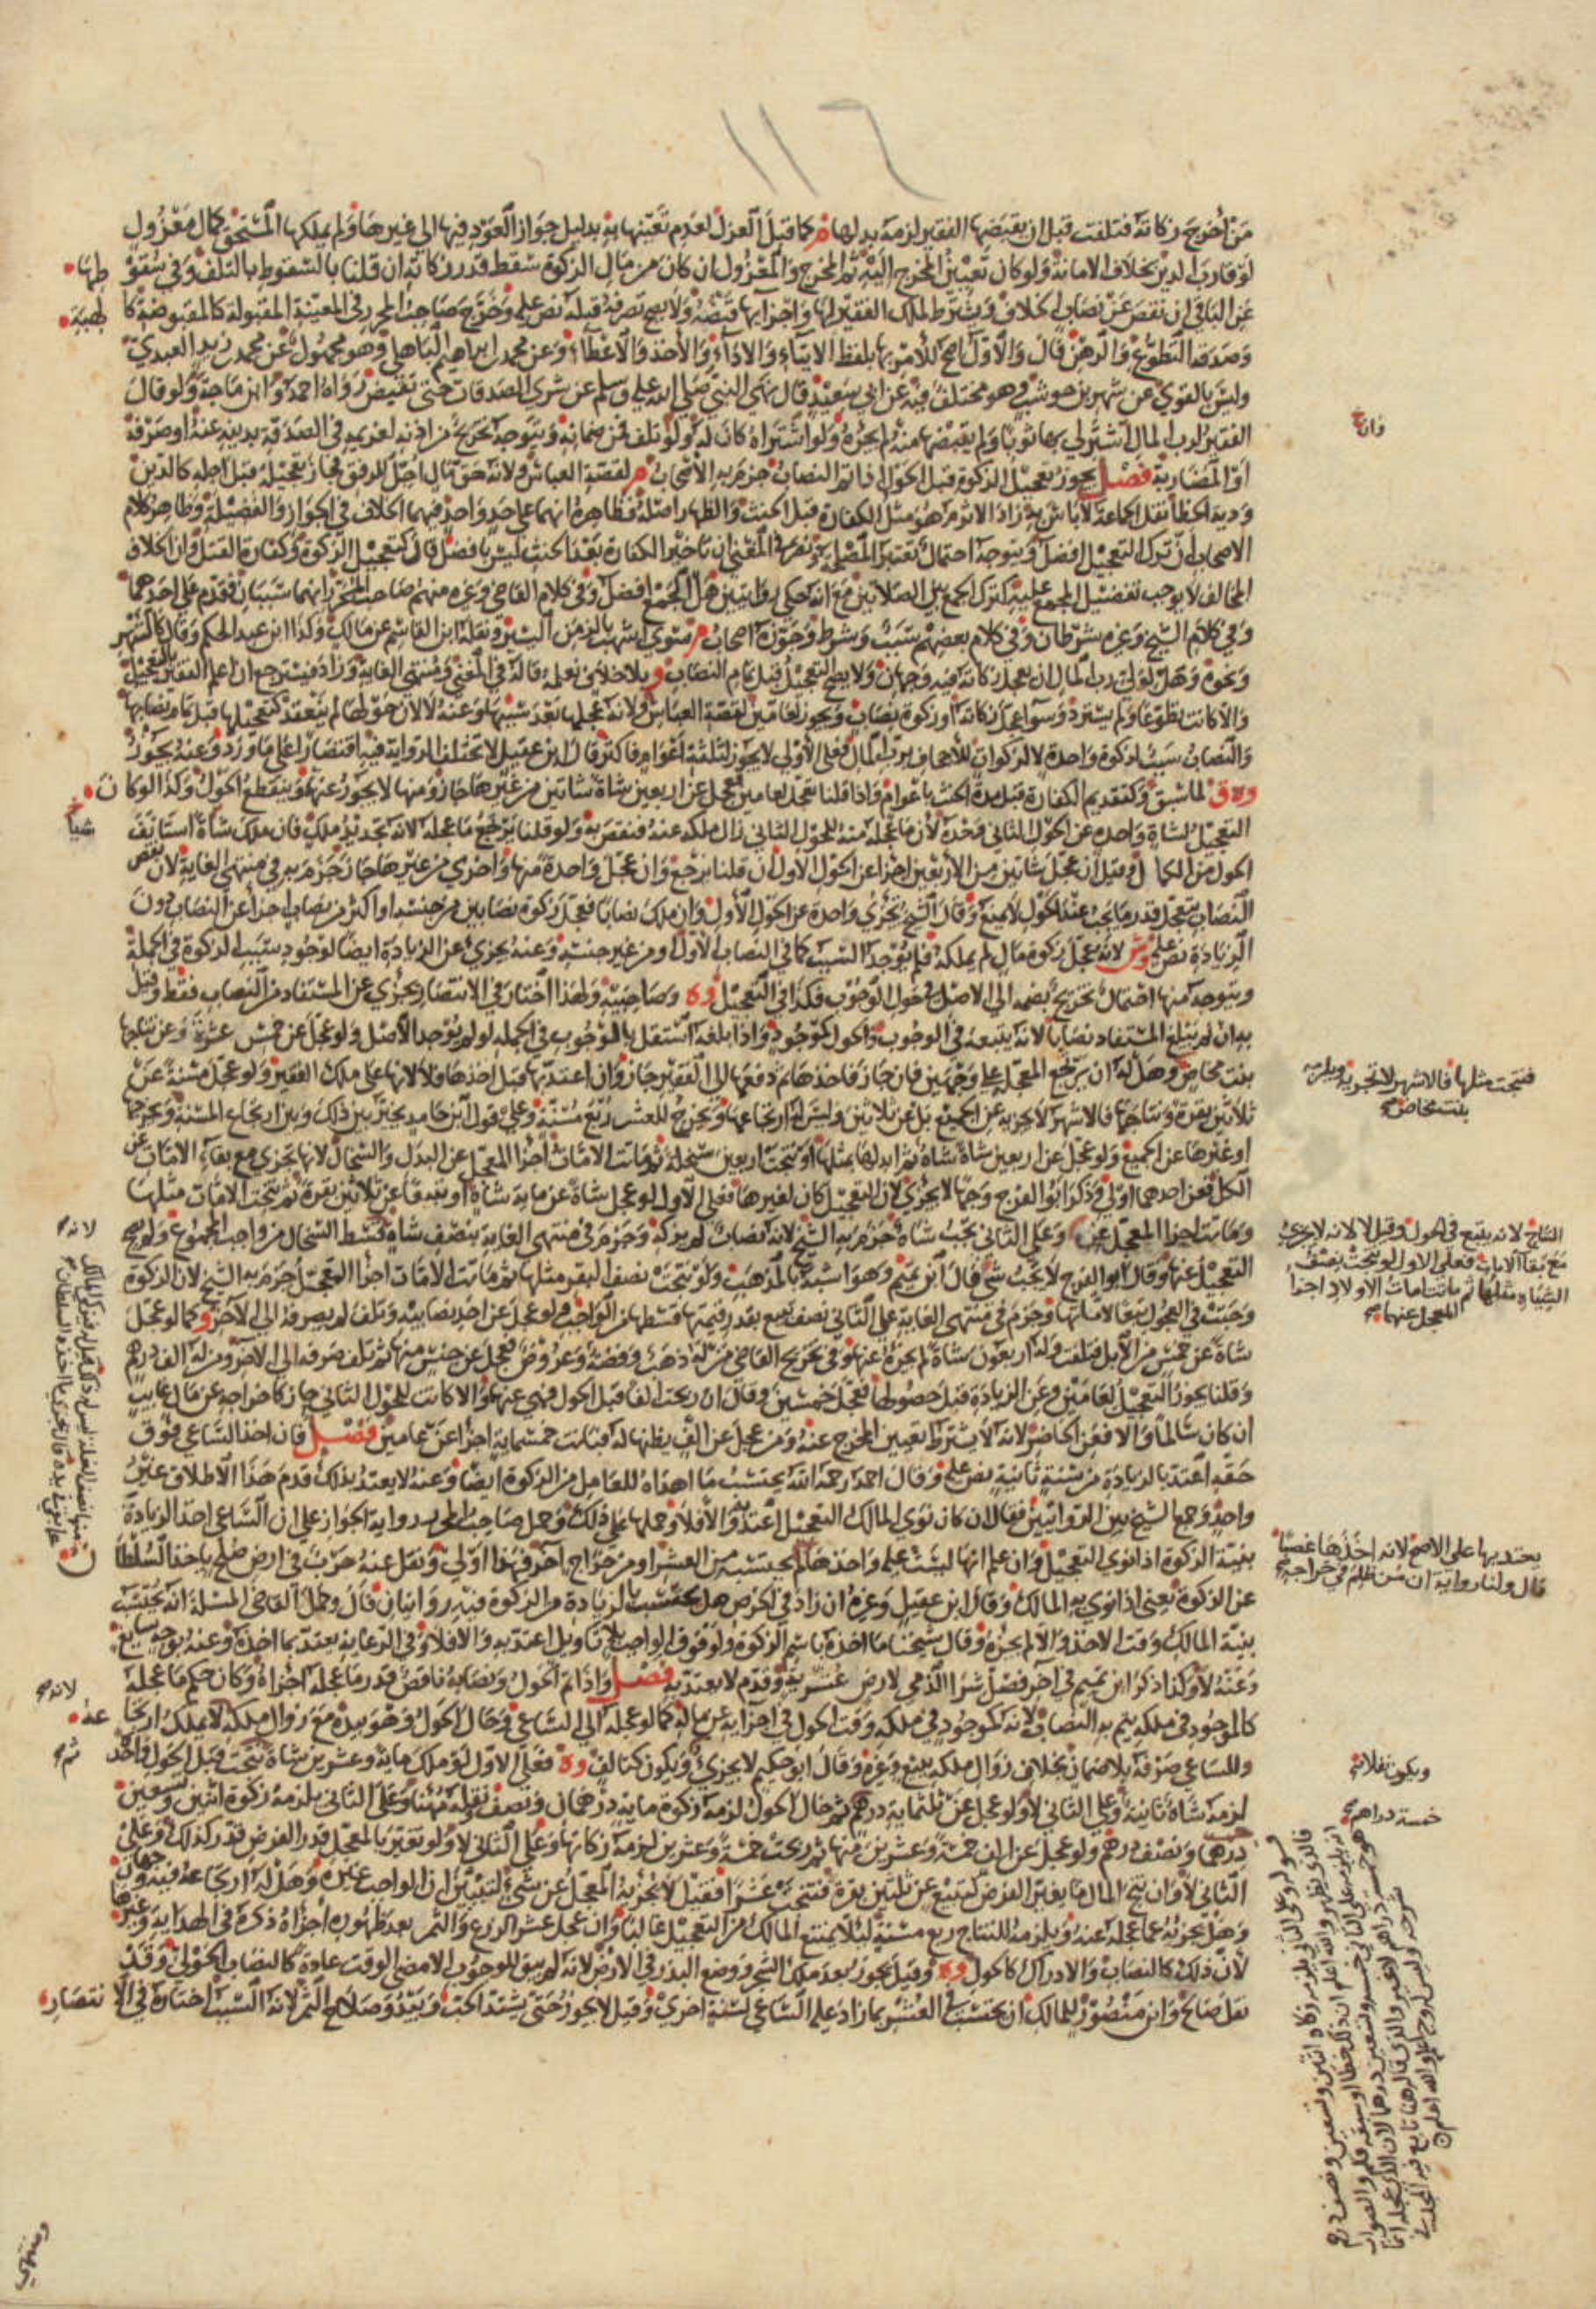 ١١٦
من أخرج زكاته فتلفت قبل ان يقبضها الفقير لزمه بدلها م كما قبل العزل لعدم تعينها به بدليل جواز العود فيها الى غيرها ولم يملكها المستحق كمال معزول
لوفا رب الدين بخلاف الامانة ولو كان تعيين المخرج اليه ثم المخرج والمعزول ان كان من مال الزكوة سقط قدر زكاته ان قلنا بالسقوط بالتلف وفي سقوطها
عن الباقي ان نقص عن نصاب الخلاف ويشترط لملك الفقير لها واجزايها قبضه ولا يصح تصرفه قبله نص عليه وخرج صاحب المحرر في المعينة المقبولة كالمقبوضة كا لهبة
وصدقة التطوع والرهن قال والاول اصح للامر بها بلفظ الايتاء والاداء والاخذ والاعطاء وعن محمد بن ابراهيم الباهلي وهو مجهول عن محمد بن زيد العبدي
وليس بالقوي عن شهر بن حوشب وهو مختلف فيه عن ابي سعيد قال نهى النبي صلى الله عليه وسلم عن شرى الصدقات حتى تقبض رواه احمد وابن ماجة ولو قال
الفقير لرب المال اشتر لي بها ثوبا ولم يقبضها منه لم يجزه ولو اشتراه كان له ولو تلف فمن ضمانه ويتوجه تخريج من اذنه لغريمه في الصدقة بدينه عنه او صرفه
او المضاربة فصل يجوز تعجيل الزكوة قبل الحول اذا تم النصاب جزم به الاصحاب م لقصة العباس ولانه حق مال اجل للرفق فجاز تعجيله قبل اجله كالدين
ودية الخطا نقل الجماعة لا باس به زاد الاثرم هو مثل الكفارة قبل الحنث والظهار اصله فظاهره انهما على حد واحد فيهما الخلاف في الجواز والفضيلة وظاهر كلام
الاصحاب ان ترك التعجيل افضل ويتوجه احتمال تعتبر المصلحة ونص في المغني ان تاخير الكفارة بعد الحنث ليس بافضل قال كتعجيل الزكوة وكفارة القتل وان الخلاف
المخالف لا يوجب تفضيل المجمع عليه كترك الجمع بين الصلاتين مع انه حكى روايتين هل الجمع افضل وفي كلام القاضي وغيره منهم صاحب المحرر انهما سببان فقدم على احدهما
وفي كلام الشيخ وغيره شرطان وفي كلام بعضهم سبب وشرط وجوزه اصحاب م سوى اشهب بالزمن اليسير ونقله ابن القاسم عن مالك وكذا ابن عبد الحكم وقال كالشهر
ونحوه وهل لولي رب المال ان يعجل زكاته فيه وجهان ولا يصح التعجيل قبل تمام النصاب و بلا خلاف نعلمه قاله في المغني ومنتهى الغاية وزاد فيسترجع ان اعلم الفقير بالتعجيل
والا كانت تطوعا ولم يسترد وسوآ عجل زكاته او زكوة نصاب ويجوز لعامين لقصة العباس ولانه عجلها بعد سببها وعنه لا لان حولها لم ينعقد كتعجيلها قبل تمام نصابها
والنصاب سبب لزكوة واحدة لا لزكوات للاجحاف برب المال فعلى الاولى لا يجوز لثلثة اعوام فاكثر قال ابن عقيل لا تختلف الرواية فيه اقتصارا على ما ورد وعنه يجوز
وه ق لما سبق وكتقديم الكفارة قبل مدة الحنث باعوام واذا قلنا تعجل لعامين فعجل عن اربعين شاة شاتين من غيرها جاز ومنها لا يجوز عنهما وينقطع الحول وكذا لو كان
التعجيل لشاة واحدة عن الحول الثاني وحده لان ما عجله منه للحول الثاني زال ملكه عنه فنقص به ولو قلنا يرتجع ما عجله لانه تجديد ملك فان ملك شاة استانف
الحول من الكمال وقيل ان عجل شاتين من الاربعين اجزا عن الحول الاول ان قلنا يرتجع وان عجل واحدة منها واخرى من غيرها جاز جزم به في منتهى الغاية لان نقص
النصاب بتعجل قدر ما يجب عند الحول لا يمنع وقال الشيخ يجزئ واحدة عن الحول الاول وان ملك نصابا فعجل زكوة نصابين من جنسه او اكثر من نصاب اجزا عن النصاب دون
الزيادة نص عليه وش لانه عجل زكوة مال لم يملكه فلم يوجد السبب كما في النصاب الاول او من غير جنسه وعنه يجزئ عن الزيادة ايضا لوجود سبب الزكوة في الجملة
ويتوجه منها احتمال تخريج بضمه الى الاصل في حول الوجوب فكذا في التعجيل وه وصاحبيه ولهذا اختار في الانتصار يجزي عن المستفاد من النصاب فقط وقيل
به ان لم يبلغ المستفاد نصابا لانه يتبعه في الوجوب والحول كموجود واذا بلغه استقل بالوجوب في الجملة لو لم يوجد الاصل ولو عجل عن خمس عشرة وعن نتاجها
بنت مخاض وهل له ان يرتجع المعجل على وجهين فان جاز فاخذها ثم دفعها الى الفقير جاز وان اعتد بها قبل اخذها فلا لانها على ملك الفقير ولو عجل مسنة عن
ثلاثين بقرة ونتاجها فالاشهر لا يجزيه عن الجميع بل عن ثلاثين وليس له ارتجاعها ويخرج للعشر ربع مسنة وعلى قول ابن حامد يخير بين ذلك وبين ارتجاع المسنة ويخرجها
او غيرها عن الجميع ولو عجل عن اربعين شاة شاة ثم ابدلها بمثلها او نتجت اربعين سخلة ثم ماتت الامات اجزا المعجل عن البدل والسخال لانها تجزي مع بقاء الامات عن
الكل فعن احدهما اولى وذكر ابو الفرج وجها لا يجزي لان التعجيل كان لغيرها فعلى الاول لو عجل شاة عن ماية شاة او تبيعا عن ثلاثين بقرة ثم نتجت الامات مثلها
وماتت اجزا المعجل عن وعلى الثاني يجب شاة جزم به الشيخ لانه نصاب لم يزكه وجزم في منتهى الغاية بنصف شاة قسط السخال من واجب المجموع ولم يصح
التعجيل عنها وقال ابو الفرج لا يجب شي قال ابن تميم وهو اشبه بالمذهب ولو نتجت نصف البقر مثلها ثم ماتت الامات اجزا المعجل جزم به الشيخ لان الزكوة
وجبت في العجول تبعا لاماتها وجزم في منتهى الغاية على الثاني نصف تبيع بقدر قيمتها قسطها من الواجب ولو عجل عن احد نصابيه وتلف لم يصرفه الى الاخر و كما لو عجل
شاة عن خمس من الابل فتلفت وله اربعون شاة لم يجزه عنها وفي تخريج القاضي من له ذهب وفضة وعروض فعجل عن جنس منها ثم تلف صرفه الى الاخر ومن له الف درهم
وقلنا يجوز التعجيل لعامين وعن الزيادة قبل حصولها فعجل خمسين وقال ان ربحت الفا قبل الحول فهي عنها والا كانت للحول الثاني جاز كاخراجه عن مال غايب
ان كان سالما والا فعن الحاضر لانه لا يشترط تعيين المخرج عنه ومن عجل عن الف يظنها له فبانت خمسماية اجزا عن عامين فصل فان اخذ الساعي فوق
حقه اعتد بالزيادة من سنة ثانية نص عليه وقال احمد رحمه الله يحتسب ما اهداه للعامل من الزكوة ايضا وعنه لا يعتد بذلك قدم هذا الاطلاق غير
واحد وجمع الشيخ بين الروايتين فقال ان كان نوى المالك التعجيل اعتد به والا فلا وحملها على ذلك وحمل صاحب المحرر رواية الجواز على ان الساعي اخذ الزيادة
بنية الزكوة اذا نوى التعجيل وان علم انها ليست عليه واخذها لم يحتسب من العشر او من خراج اخر فهذا اولى ونقل عنه حرب في ارض صلح ياخذ السلطان
عن الزكوة يعني اذا نوى به المالك وقال ابن عقيل وغيره ان زاد في الخرص هل يحتسب بالزيادة من الزكوة فيه روايتان قال وحمل القاضي المسئلة انه يحتسب
بنية المالك وقت الاخذ والا لم يجزه وقال شيخنا ما اخذه باسم الزكوة ولو فوق الواجب بلا تاويل اعتد به والا فلا وفي الرعاية يعتد بما اخذه وعنه بوجه سايغ
وعنه لا وكذا ذكر ابن تميم في اخر فصل شرا الذمي لارض عشرية وقدم لا يعتد به فصل واذا تم الحول ونصابه ناقص قدر ما عجله اجزاه وكان حكم ما عجله
كالموجود في ملكه يتم به النصاب لانه كموجود في ملكه وقت الحول في اجزايه عن ماله كما لو عجله الى الساعي في حال الحول وهو بيده مع زوال ملكه لا يملك ارتجاعه
وللساعي صرفه بلا ضمان بخلاف زوال ملكه ببيع وغيره وقال ابو حكيم لا يجزئ ويكون كتالف وه فعلى الاول لو ملك ماية وعشرين شاة نتجت قبل الحول واحدة
لزمه شاة ثانية وعلى الثاني لا ولو عجل عن ثلثماية درهم ثم حال الحول لزمه زكوة ماية درهمان ونصف ونقله مهنا وعلى الثاني يلزمه زكوة اثنين وتسعين
درهما ونصف درهم ولو عجل عن الف خمسة وعشرين منها ثم ربحت خمسة وعشرين لزمه زكاتها وعلى الثاني لا ولو تغير بالمعجل قدر الفرض قدر كذلك وعلى
الثاني لا وان نتج المال ما يغير الفرض كتبيع عن ثلثين بقرة فنتجت عشرا فقيل لا تجزيه المعجل عن شي لتبين ان الواجب غيره وهل له ارتجاعه فيه وجهان
وهل يجزيه عما عجله عنه ويلزمه للنتاج ربع مسنة ليلا يمتنع المالك من التعجيل غالبا وان عجل عشر الزرع والثمر بعد ظهوره اجزاه ذكره في الهداية وغيرها
لان ذلك كالنصاب والادراك كالحول وه وقيل يجوز بعد ملك الشجر ووضع البذر في الارض لانه لم يبق للوجوب الا مضي الوقت عادة كالنصاب الحولي وقد
نقل صالح وابن منصور للمالك ان يحتسب في العشر بما زاد عليه الساعي لسنة اخرى وقيل لا يجوز حتى يشتد الحب ويبدو صلاح الثمر لانه السبب اختاره في الانتصار
فان
شيا
فنتجت مثلها فالاشهر لا تجزيه ويلزمه
بنت مخاض
النتاج لانه يتبع في الحول وقيل لا لانه لا يجزئ
مع بقا الامات فعلى الاول لو نتجت نصف
الشياه مثلها ثم ماتت امات الاولاد اجزا
المعجل عنها
لانه
يعتد بها على الاصح لانه اخذها غصبا
قال ولنا رواية ان من ظلم في خراجه
لانه
ويكون نفلا
خمسة دراهم